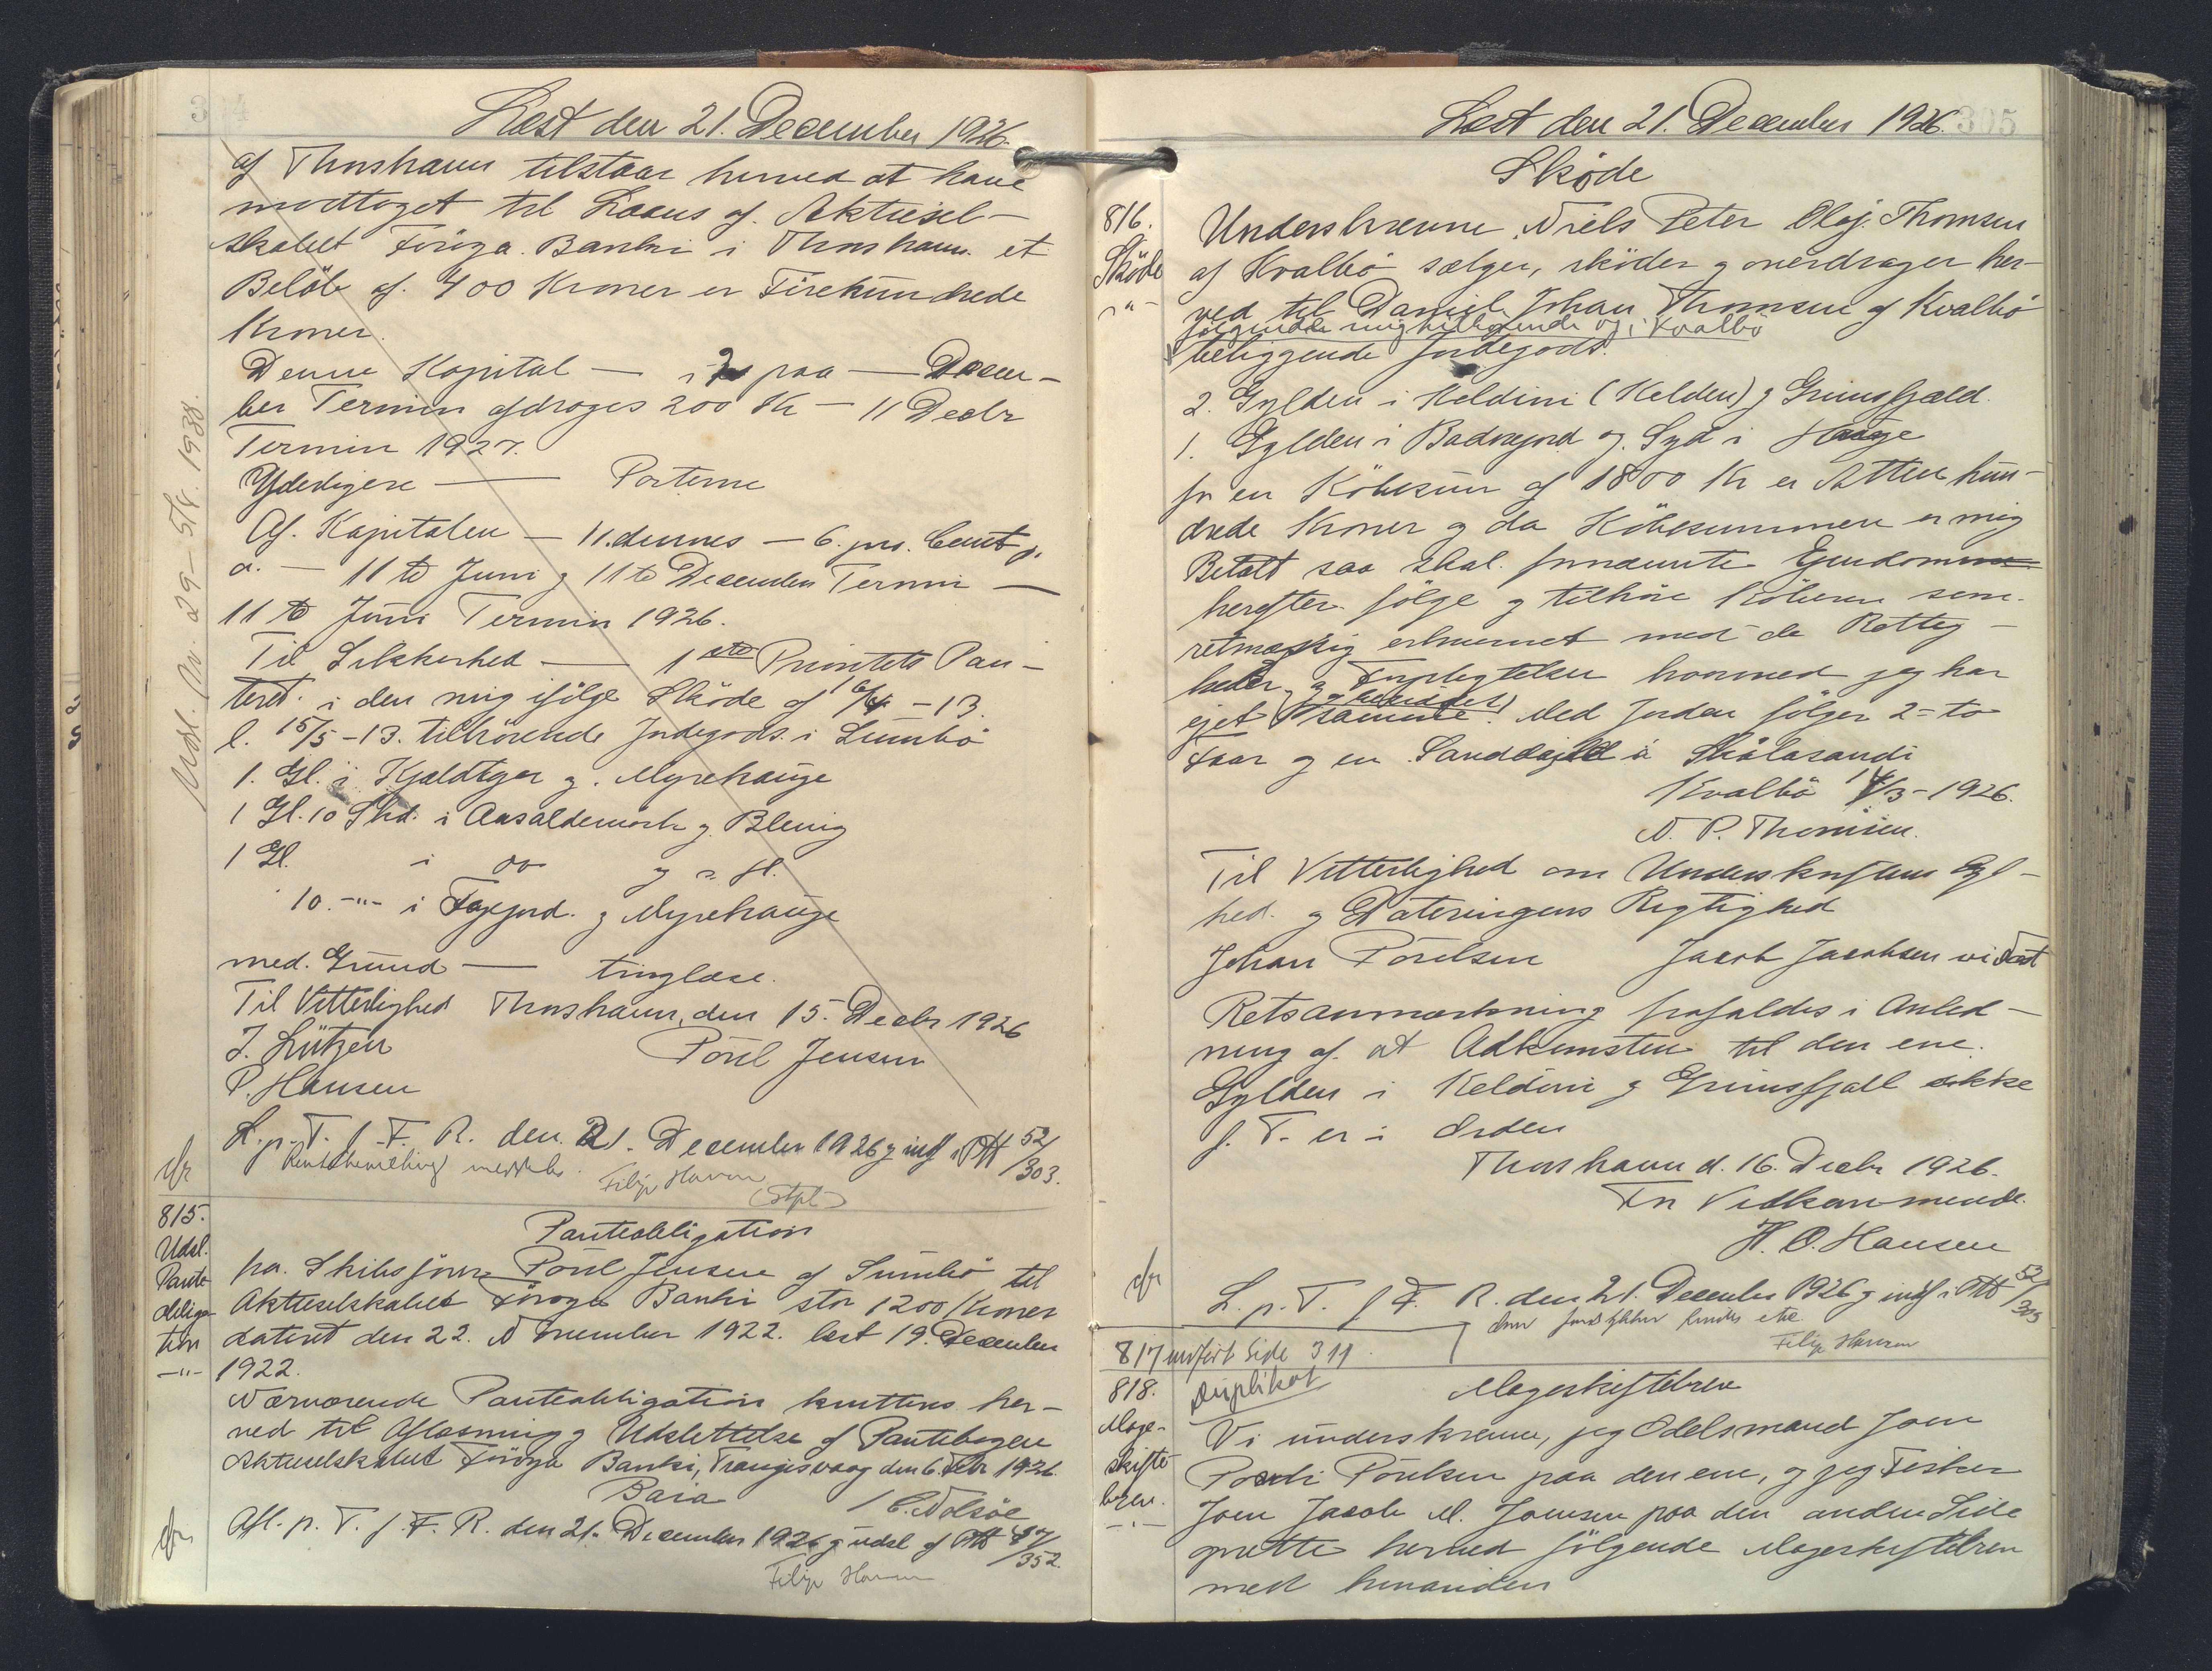 304
Læst den 21. December 1926.
af Thorshavn tilstaar herved at have
modtaget til Laans af Aktiesel-
skabet Føroya Banki i Thorshavn et
Beløb af 400 Kroner er Firehundrede
Kroner.
Denne Kapital — paa — Decem-
ber Termin afdrages 200 Kr — 11 Decbr
Termin 1927.
Yderligere — Parterne
Af Kapitalen — 11. dennes — 6. pro. Cent p.
a. — 11 te Juni og 11 te December Termin —
11 te Juni Termin 1926.
Til Sikkerhed — 1 ste Prioritets Pan-
teret i den mig ifølge Skøde af 16/4 - 13.
l. 15/5 - 13. tilhørende Jordegods i Sumbø
1. Gl. i Kjældtger og Myrehauge
1 Gl. 10 Skd. i Aasaldemørk og Blenig
1 Gl. i do og s. fl.
10 -"- i Fagegjord og Myrehauge
med Grund — tinglæse.
Til Vitterlighed Thorshavn, den 15. Decbr 1926
J. Lützen Poul Jensen
P. Hansen
L. p. T. f. F. R. den 21. December 1926 og indf i Ptt 52/303.
Filip Hansen
(Stpl.)
Udsl. Av. 29 - 5/4. 1938.
cfr
815.
Udsl.
Pante
obliga
tion
—"—
Panteobligation
fra Skibsfører Poul Jensen af Sumbø til
Aktieselskabet Føroya Banki stor 1200 Kroner
dateret den 22. November 1922. læst 19. December
1922.
Nærværende Panteobligation kvitteres her-
ved til Aflæsning og Udslettelse af Pantebogen
Aktieselskabet Føroya Banki, Trangisvaag den 6. Febr 1926.
/ C. Nolsøe
cfr
Afl. p. T. f. F. R. den 21. December 1926 og udsl af Ptt 47/352.
Filip Hansen
305
Læst den 21. December 1926.
Skøde
816.
Skøde
-"-
Underskrevne Niels Peter Olaj. Thomsen
af Kvalbø sælger, skøder og overdrager her-
ved til Daniel Johan Thomsen af Kvalbø
følgende mig tilhørende og i Kvalbø
beliggende Jordegods.
2. Gylden i Keldini (Kelden) og Grimsfjæld.
1. Gylden i Badnegjord og Syd i Hauge
for en Købesum af 1800 Kr er Atten hun-
drede Kroner og da Købesummen er mig
Betalt saa skal fornævnte Ejendomme
herefter følge og tilhøre Køberen som
retmæssig erhvervet med de Rettig-
heder og Forpligtelser hvormed jeg har
ejet og besiddet samme. Med Jorden følger 2 = to
Faar og en Sanddajld á Skálasandi
Kvalbø 1/3 - 1926.
N. P. Thomsen.
Til Vitterlighed om Underskriftens Ægt-
hed og Dateringens Rigtighed
Johan Poulsen Jacob Jacobsen við Neyst
Retsanmærkning frafaldes i Anled-
ning af at Adkomsten til den ene
Gylden i Keldini og Grimsfjall ikke
f. T. er i Orden
Thorshavn d. 16. Decbr 1926.
For Vedkommende.
H. O. Hansen
cfr
L. p. T. f F. R. den 21. December 1926 og indf i Ptt 52/303
Filip Hansen
817 indført Side 311.
818.
Mage-
skifte
brev.
-"-
Duplikat
Mageskiftebrev
Vi underskrevne, jeg Odelsmand Joen
Pouli Poulsen paa den ene, og jeg Fisker
Joen Jacob M. Joensen paa den anden Side
oprette herved følgende Mageskiftebrev
med hinanden